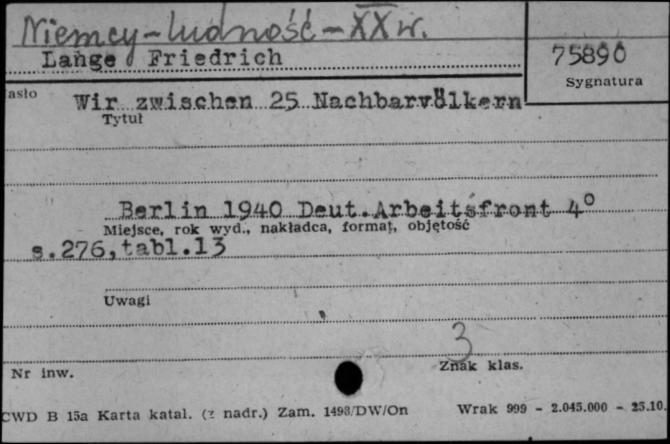 Niemcy - ludność - XX w.
Lange Friedrich
75890
Sygnatura
asło
Wir zwischen 25 Nachbarvölkern
Tytuł
Berlin 1940 Deut.Arbeitsfront 4°
Miejsce, rok wyd., nakładca, format, objętość
s.276,tabl.13
Uwagi
3
Nr inw.
Znak klas.
CWD B 15a Karta katal. (z nadr.) Zam. 1493/DW/On
Wrak 999 - 2.045.000 - 25.10.